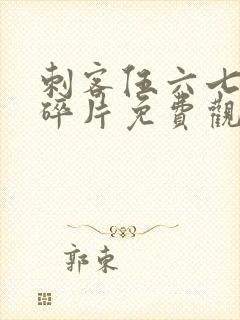 刺客伍六七
碎片免費觀
郭東